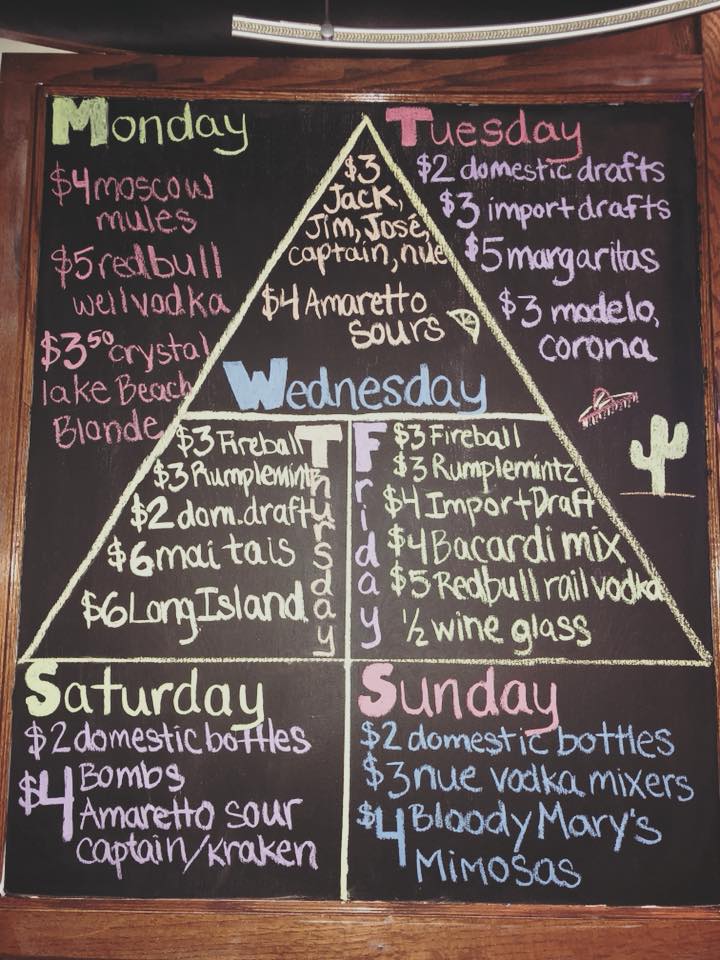 Monday
$4 moscow
mules
$5 redbull
well vodka
$3⁵⁰ crystal
lake Beach
Blonde
Tuesday
$2 domestic drafts
$3 import drafts
$5 margaritas
$3 modelo,
corona
$3
Jack,
Jim, José,
captain, nue
$4 Amaretto
sours
Wednesday
Thursday
$3 Fireball
$3 Rumplemintz
$2 dom. draft
$6 mai tais
$6 Long Island
Friday
$3 Fireball
$3 Rumplemintz
$4 Import Draft
$4 Bacardi mix
$5 Redbull rail vodka
½ wine glass
Saturday
$2 domestic bottles
$4 Bombs
Amaretto sour
captain/kraken
Sunday
$2 domestic bottles
$3 nue vodka mixers
$4 Bloody Mary's
Mimosas